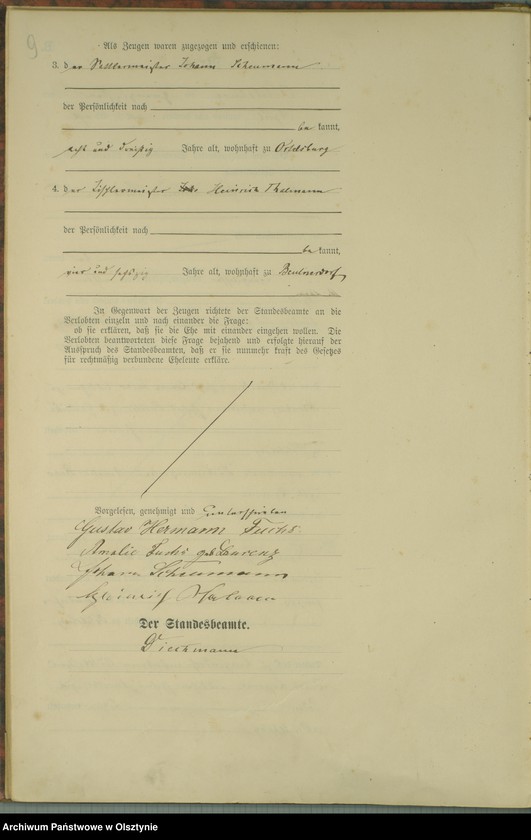 9
Als Zeugen waren zugezogen und erschienen:
3. der Sattlermeister Johann Scheumann
der Persönlichkeit nach
bekannt,
acht und dreißig Jahre alt, wohnhaft zu Ortelsburg
4. der Tischlermeister Heinrich
der Persönlichkeit nach
bekannt,
vier und sechszig Jahre alt, wohnhaft zu Beutnerdorf
In Gegenwart der Zeugen richtete der Standesbeamte an die
Verlobten einzeln und nach einander die Frage:
ob sie erklären, daß sie die Ehe mit einander eingehen wollen. Die
Verlobten beantworteten diese Frage bejahend und erfolgte hierauf der
Ausspruch des Standesbeamten, daß er sie nunmehr kraft des Gesetzes
für rechtmäßig verbundene Eheleute erkläre.
Vorgelesen, genehmigt und unterschrieben
Gustav Hermann Fuchs.
Amalie Fuchs geb. Laurenz
Johann Scheumann
Heinrich
Der Standesbeamte.
Dieckmann
Archiwum Państwowe w Olsztynie